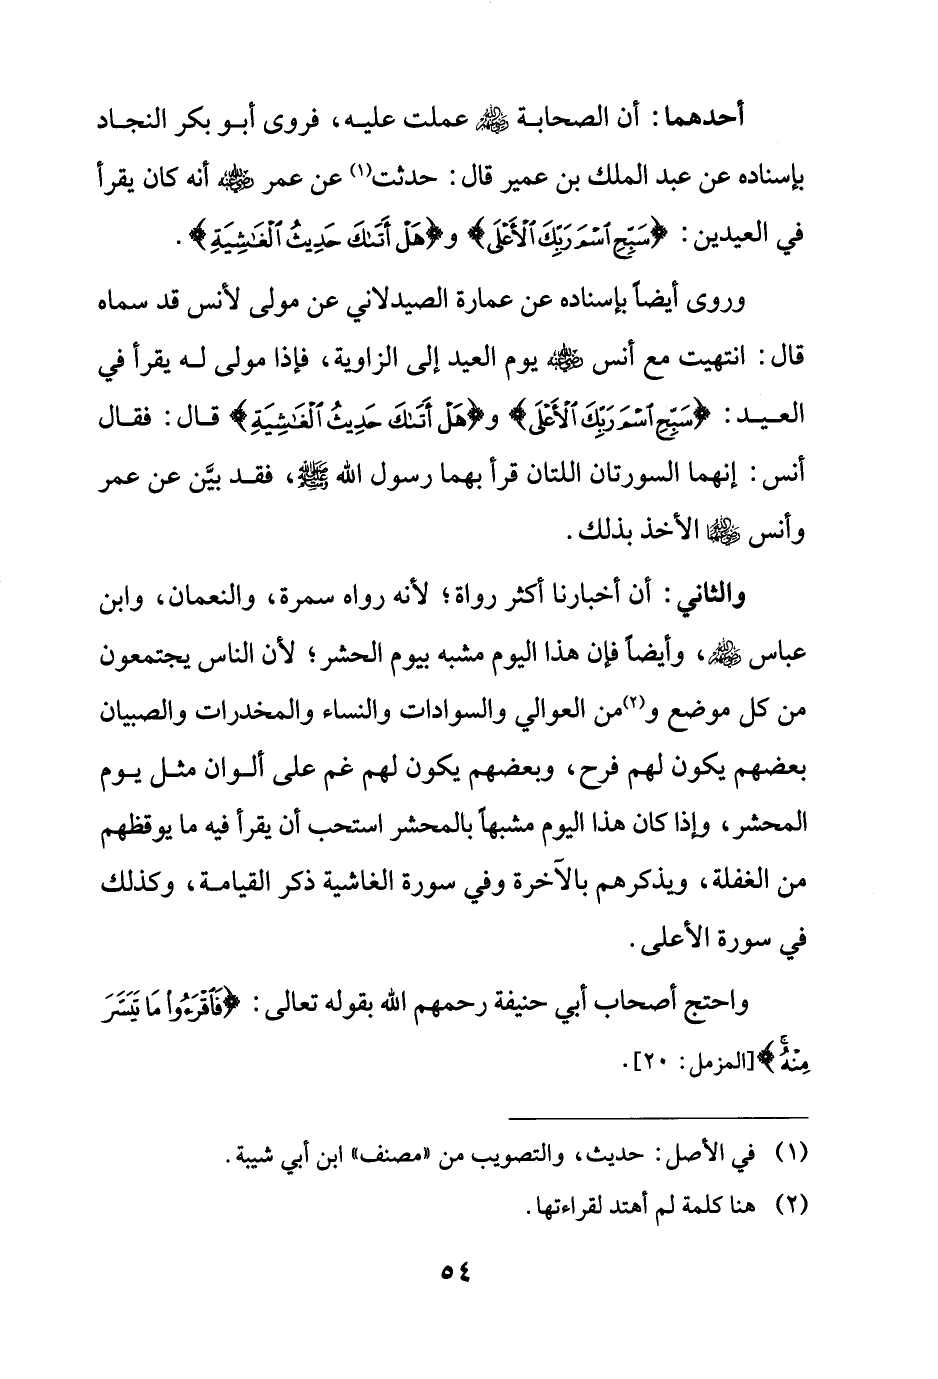 أحدهما: أن الصحابة ﷺ عملت عليه، فروى أبو بكر النجاد
بإسناده عن عبد الملك بن عمير قال: حدثت(١) عن عمر رضي الله عنه أنه كان يقرأ
في العيدين: ﴿سَبِّحِ ٱسْمَ رَبِّكَ ٱلْأَعْلَى﴾ و﴿هَلْ أَتَىٰكَ حَدِيثُ ٱلْغَٰشِيَةِ﴾.
وروى أيضاً بإسناده عن عمارة الصيدلاني عن مولى لأنس قد سماه
قال: انتهيت مع أنس رضي الله عنه يوم العيد إلى الزاوية، فإذا مولى له يقرأ في
العيد: ﴿سَبِّحِ ٱسْمَ رَبِّكَ ٱلْأَعْلَى﴾ و﴿هَلْ أَتَىٰكَ حَدِيثُ ٱلْغَٰشِيَةِ﴾ قال: فقال
أنس: إنهما السورتان اللتان قرأ بهما رسول الله ﷺ، فقد بيَّن عن عمر
وأنس رضي الله عنهما الأخذ بذلك.
والثاني: أن أخبارنا أكثر رواة؛ لأنه رواه سمرة، والنعمان، وابن
عباس رضي الله عنهم، وأيضاً فإن هذا اليوم مشبه بيوم الحشر؛ لأن الناس يجتمعون
من كل موضع و(٢)من العوالي والسوادات والنساء والمخدرات والصبيان
بعضهم يكون لهم فرح، وبعضهم يكون لهم غم على ألوان مثل يوم
المحشر، وإذا كان هذا اليوم مشبهاً بالمحشر استحب أن يقرأ فيه ما يوقظهم
من الغفلة، ويذكرهم بالآخرة وفي سورة الغاشية ذكر القيامة، وكذلك
في سورة الأعلى.
واحتج أصحاب أبي حنيفة رحمهم الله بقوله تعالى: ﴿فَٱقْرَءُوا۟ مَا تَيَسَّرَ
مِنْهُ ۚ﴾[المزمل: ٢٠].
(١) في الأصل: حديث، والتصويب من «مصنف» ابن أبي شيبة.
(٢) هنا كلمة لم أهتد لقراءتها.
٥٤